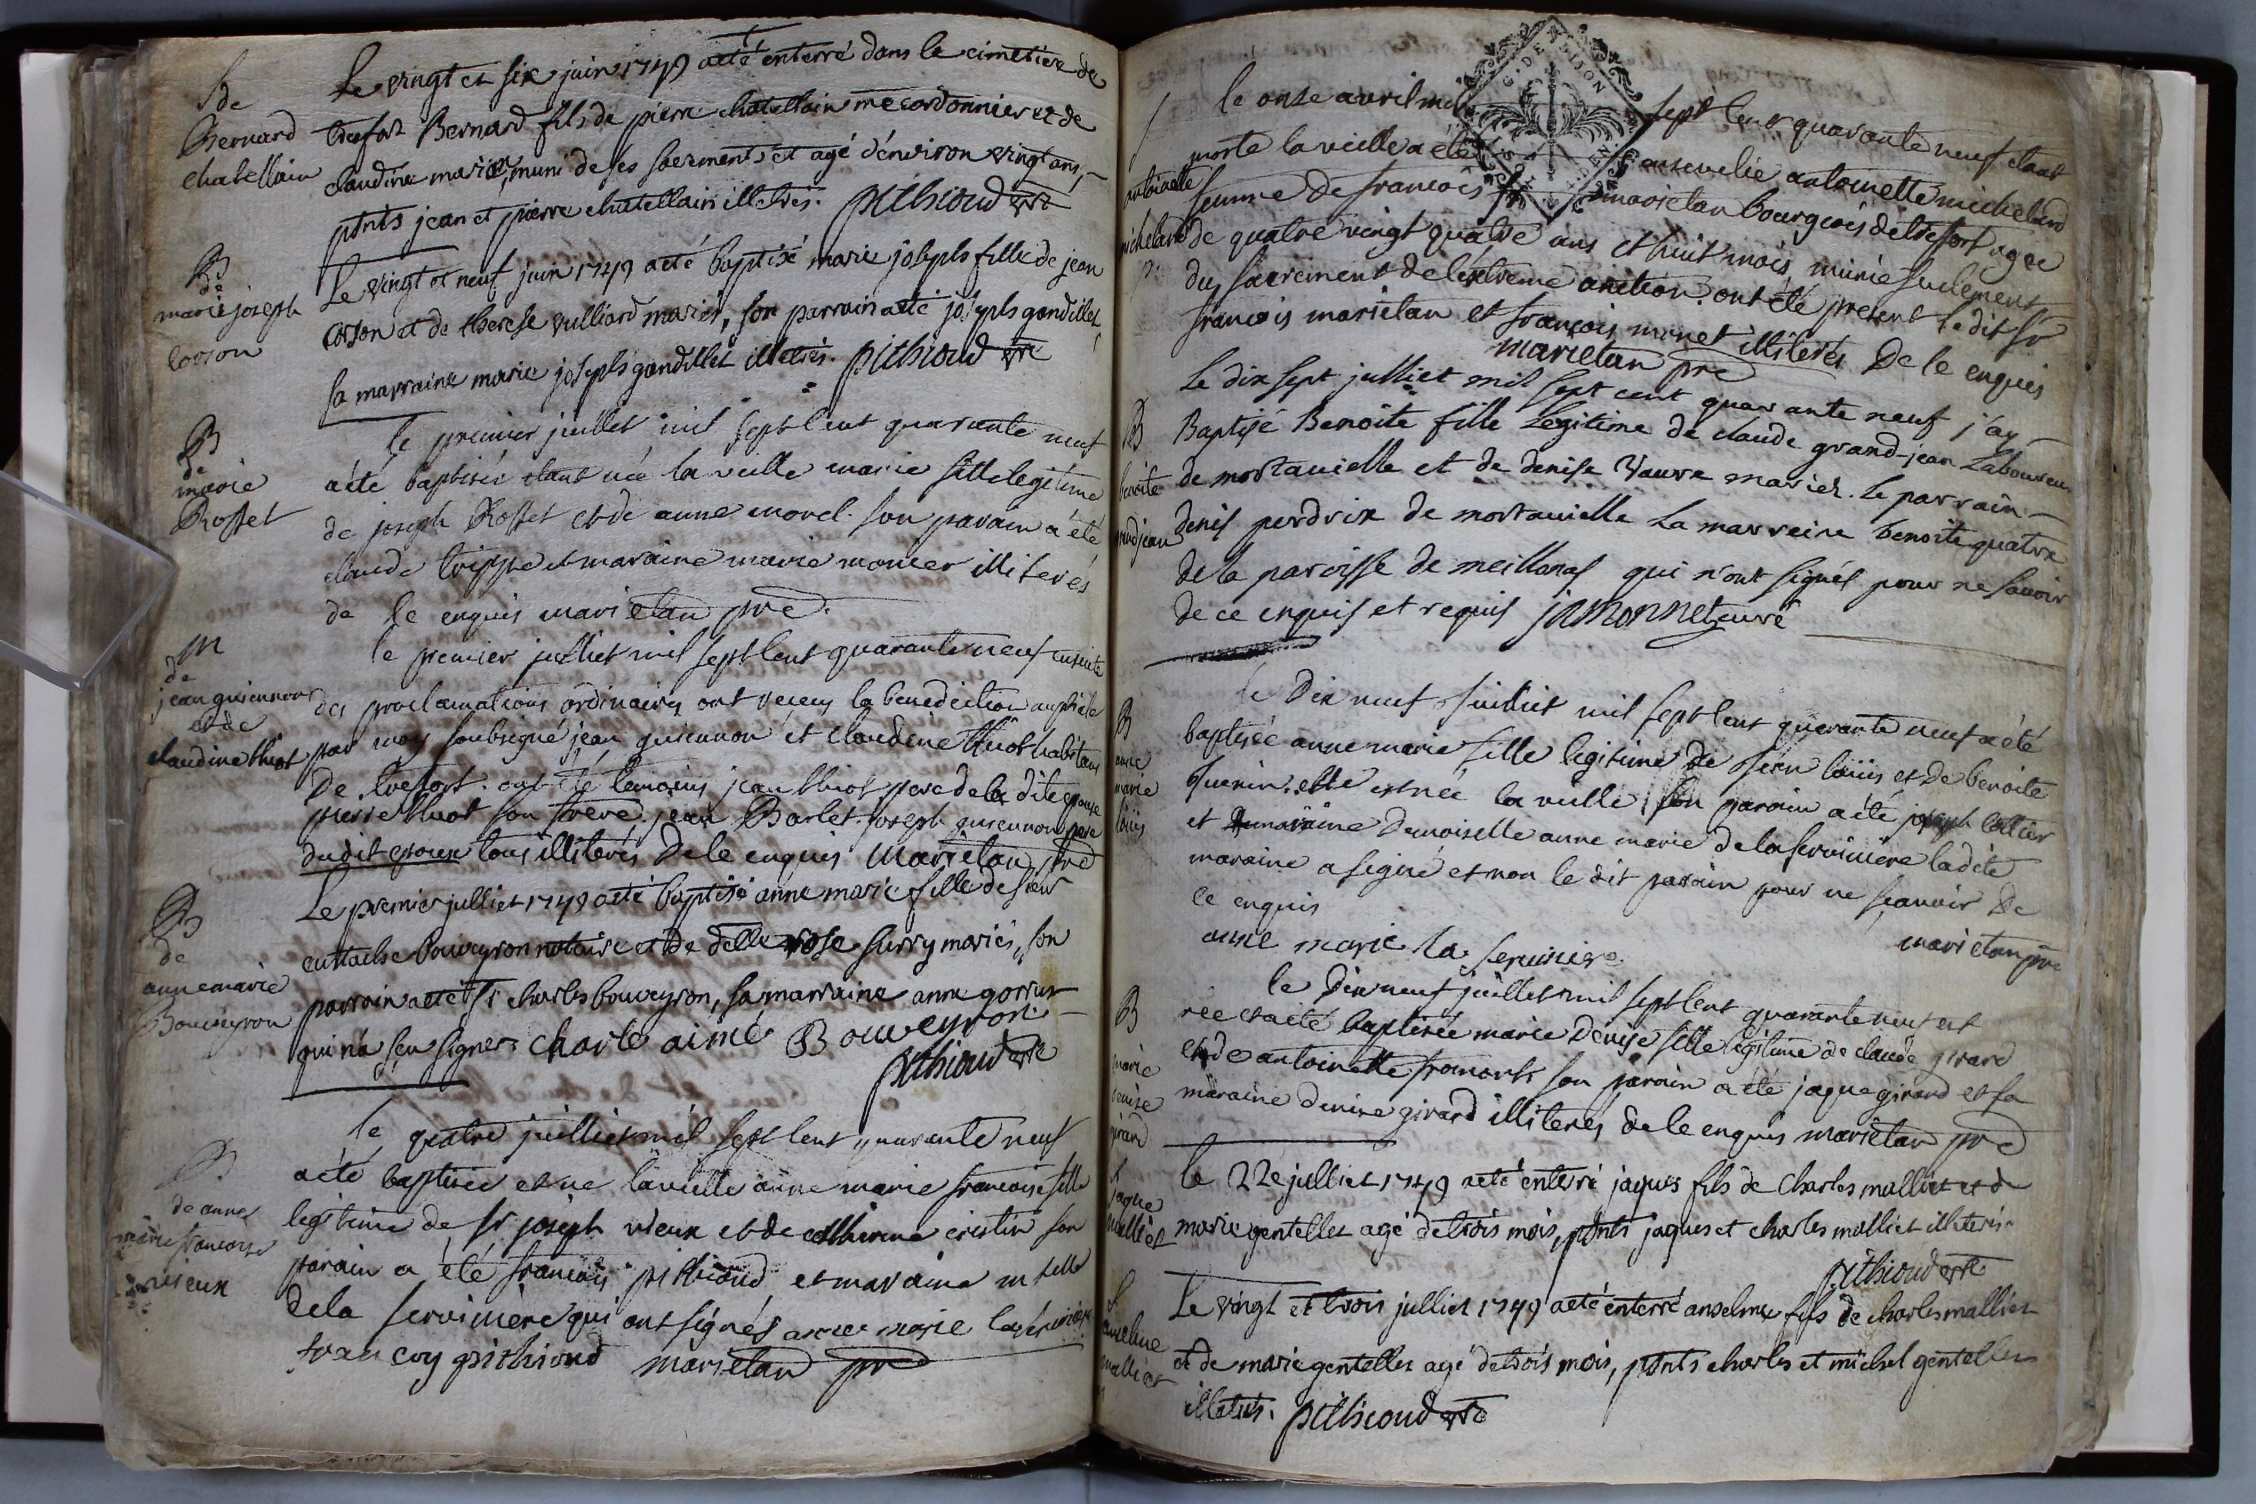 S de
Bernard
chatellain
Le vingt et six juin 1749 a eté enterré dans le cimetiere de
trefort Bernard fils de pierre chatellain me cordonnier et de
claudine mariés, muni de ses sacrements et agé d'environ vingt ans,
pnts jean et pierre chatellain illetrés. pithioud
B
de
marie joseph
corson
Le vingt et neuf juin 1749 a eté baptisé marie joseph fille de jean
corson et de therese vulliard mariés, son parrain a eté joseph gondillet
sa marraine marie joseph gondillet illetrés. pithioud
B
de
marie
Rosset
le premier juillet mil sept cent quarante neuf
a été baptisée etant née la veille marie fille legitime
de joseph Rosset et de anne morel. son parain a été
claude trippe et maraine marie monier illiterés
de le enquis marietan pre
M
de
jean guiennon
et de
claudine thiot
le premier julliet mil sept cent quarante neuf ensuite
des proclamations ordinaires ont receu la benediction nuptiale
par moy soubsigné jean guiennon et claudine thiot habitans
De trefort. ont été temoins jean thiot pere de la dite epouse
pierre thiot son frere, jean Barlet. joseph guiennon pere
dudit epoux tous illiterés De le enquis marietan pre
B
de
anne marie
Bouveyron
Le premier julliet 1749 a eté baptisé anne marie fille de sieur
eustache bouveyron notaire et de delle rose surry mariés, son
parrain a eté sr charles bouveyron, sa marraine anne
qui n'a sçu signer charle aimé Bouveyron
pithioud
B
de anne
marie francoise
vieux
le quatre juilliet mil sept cent quarante neuf
a été baptisée et né la veille anne marie francoise fille
legitime de sr joseph vieux et de catherine cristin son
parain a été francois pithioud et maraine
dela servinière qui ont signés anne marie laserviniere
francoy pithioud marietan pre
antoinette
michelard
le onze avril mil sept cent quarante neuf etant
morte la veille a été ensevelie antoinette michelard
femme de francois marietan bourgeois de trefort agée
de quatre vingt quatre ans et huit mois munie seulement
du sacrement de l'extreme onction. ont été present le dit sr
francois marietan et francois monet illiterés De le enquis
marietan pre
B
benoite
grandjean
Le dix sept julliet mil sept cent quarante neuf j'ay
Baptisé Benoite fille Legitime de claude grand-jean Laboureur
de mortavielle et de denise Vaure mariés. Le parrain
denis perdrix de mortavielle La marreine benoite quatre
de la paroisse de meillonas qui n'ont signés pour ne savoir
de ce enquis et requis jamonnet curé
B
anne
marie
loüis
le Dix neuf juilliet mil sept cent quarante neuf a été
baptisée anne marie fille legitime de jean loüis et de benoite
guerin. elle est née la veille son parain a été joseph cottier
et maraine Demoiselle anne marie de la serviniere la dite
maraine a signé et non le dit parain pour ne sçavoir De
le enquis
anne marie la serviniere marietan pre
B
marie
denise
girard
le Dix neuf juillet mil sept cent quarante neuf est
née et a été baptisée marie denise fille legitime de claude girard
et de antoinette fromont son parain a été jaque girard et sa
maraine denise girard illiterés de le enquis marietan pre
S
jaque
malliet
le 22e julliet 1749 a eté enterré jaques fils de charles malliet et de
marie gentellet agé de trois mois, pnts jaques et charles malliet illeterés.
pithioud
S
anselme
malliet
Le vingt et trois julliet 1749 a eté enterré anselme fils de charles malliet
et de marie gentellet agé de trois mois, pnts charles et michel gentellet
illetrés. pithioud